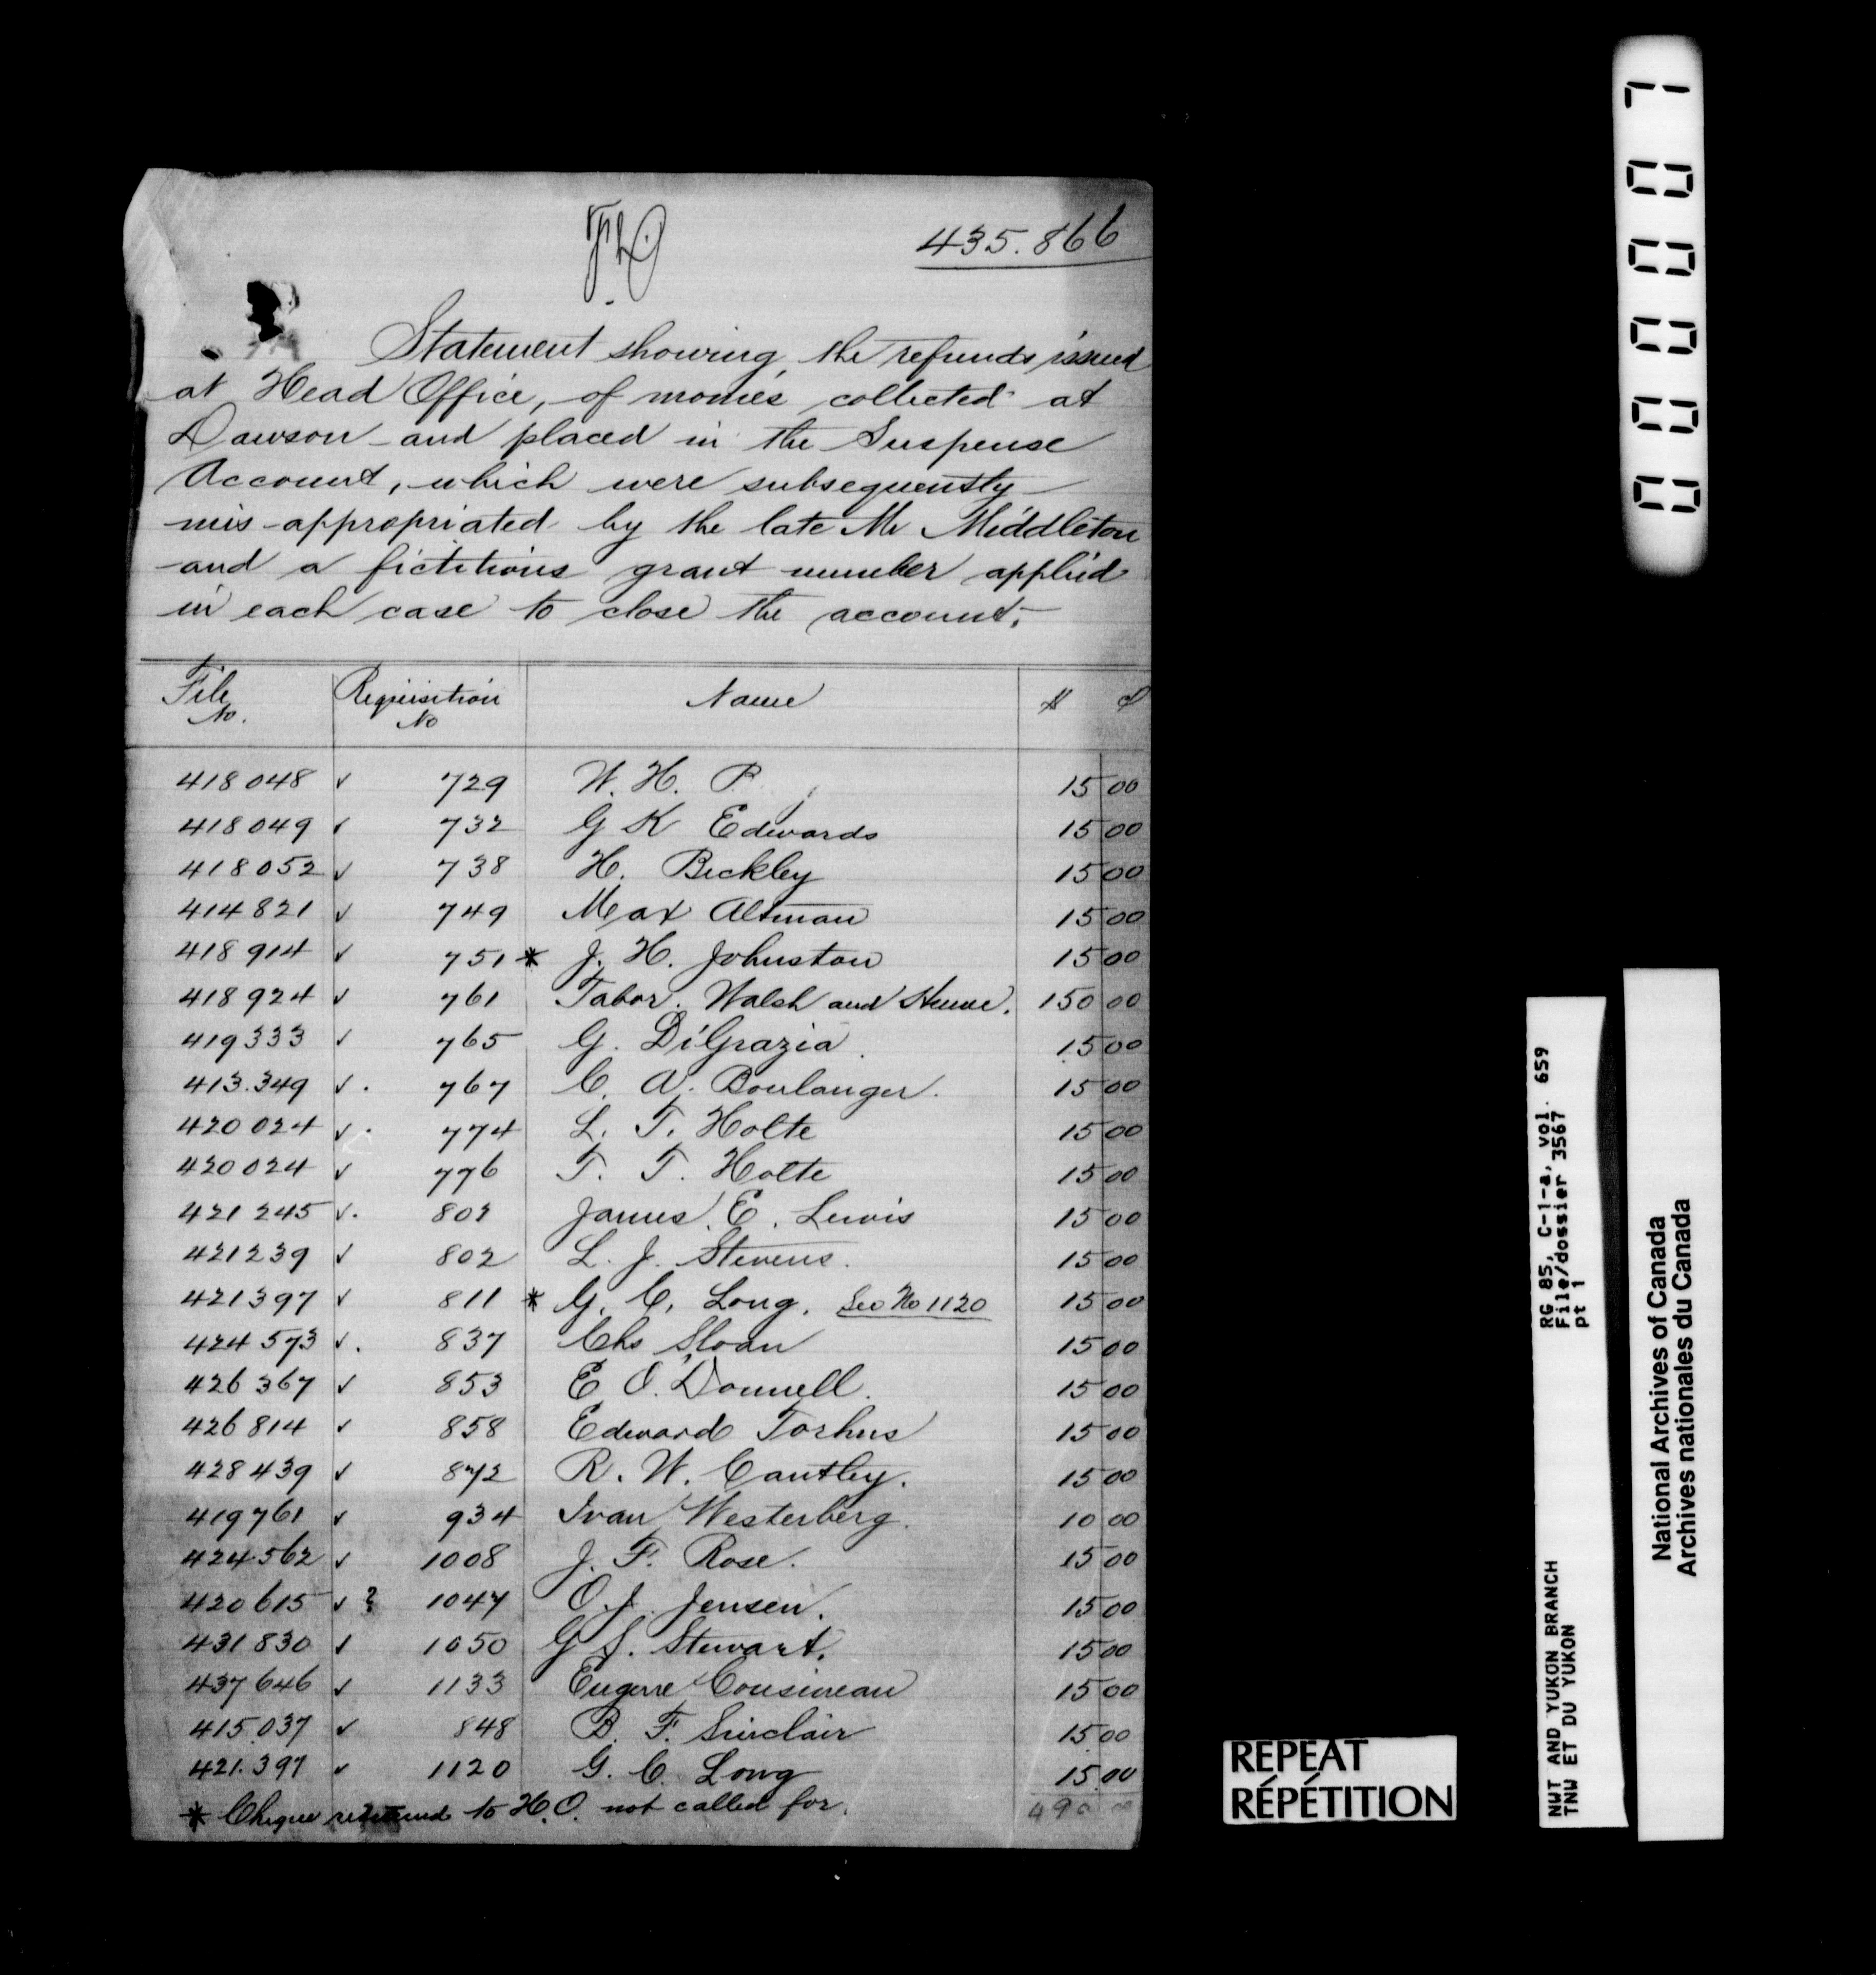 435.866
Statement showing, the refunds issued
at Head Office, of monies collected at
Dawson and placed in the Suspense
Account, which were subsequently
mis-appropriated by the late Mr Middleton
and a fictitious grant number applied
in each case to close the account.
File No. Requisition No Name $ ¢
418048 ✓ 729 W. H. P 15 00
418049 ✓ 732 G K Edwards 15 00
418052 ✓ 738 H. Beckley 15 00
414821 ✓ 749 Max Altman 15 00
418914 ✓ 751 * J. H. Johnston 15 00
418924 ✓ 761 Tabor. Walsh and Hulme. 150 00
419333 ✓ 765 G. DiGrazia. 15 00
413.349 ✓. 767 C. A. Boulanger. 15 00
420024 ✓. 774 L. T. Holte 15 00
420024 ✓ 776 T. T. Holte 15 00
421245 ✓. 802 James. E. Lewis 15 00
421239 ✓ 802 L. J. Stevens. 15 00
421397 ✓ 811 * G. C. Long. See No 1120 15 00
424573 ✓. 837 Chs Sloan 15 00
426367 ✓ 853 E O'Donnell. 15 00
426814 ✓ 858 Edward Torhus 15 00
428439 ✓ 872 R. W. Cantley. 15 00
419761 ✓ 934 Ivan Westerberg. 10 00
424562 ✓ 1008 J. F. Rose. 15 00
420615 ✓ ? 1047 O. J. Jensen. 15 00
431830 ✓ 1050 G S. Stewart. 15 00
437646 ✓ 1133 Eugene Cousineau 15 00
415.037 ✓ 848 B. F. Sinclair 15 00
421.397 ✓ 1120 G. C. Long 15.00
* Cheque returned to H.O. not called for. 490 00
0000007
RG 85, C-1-a, vol. 659
File/dossier 3567
pt 1
NWT AND YUKON BRANCH
TNW ET DU YUKON
National Archives of Canada
Archives nationales du Canada
REPEAT
RÉPÉTITION